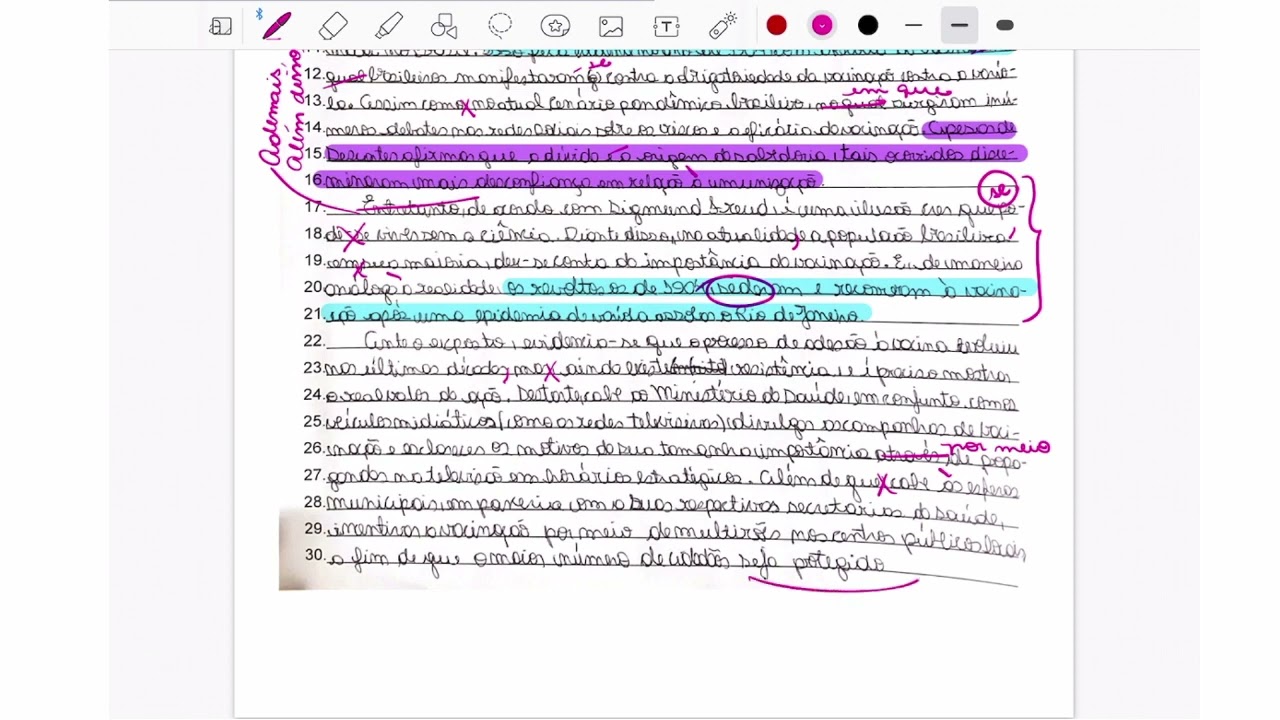 12. que brasileiros manifestaram-se contra a obrigatoriedade da vacinação contra a varío-
em que
13. la. Assim como no atual cenário pandêmico brasileiro, no qual surgiram inú-
14. meros debates nas redes sociais sobre os riscos e a eficácia da vacinação. Apesar de
15. Descartes afirmar que a dúvida é a origem da sabedoria, tais ocorridos disse-
16. minaram mais desconfiança em relação à imunização.
Ademais
Além disso
se
17. Entretanto, de acordo com Sigmund Freud, é uma ilusão crer que po-
18. de se viver sem a ciência. Diante disso, na atualidade, a população brasileira
19. em sua maioria, deu-se conta da importância da vacinação. E, de maneira
20. análoga a realidade, os revoltosos de 1904 sederam e recorreram à vacina-
21. ção após uma epidemia de varíola assolar o Rio de Janeiro.
22. Ante o exposto, evidencia-se que o processo de adesão à vacina evoluiu
23. nas últimas décadas, mas ainda existe resistência, e é preciso mostrar
24. o real valor da ação. Destarte, cabe ao Ministério da Saúde, em conjunto com os
25. veículos midiáticos (como as redes televisivas) divulgar as campanhas de vaci-
por meio
26. nação e esclarecer os motivos de sua tamanha importância através de propa-
27. gandas na televisão em horários estratégicos. Além de que, cabe às esferas
28. municipais, em parceria com a suas respectivas secretarias da saúde,
29. incentivar a vacinação por meio de multirões nos centros públicos locais,
30. a fim de que o maior número de cidadãos seja protegido